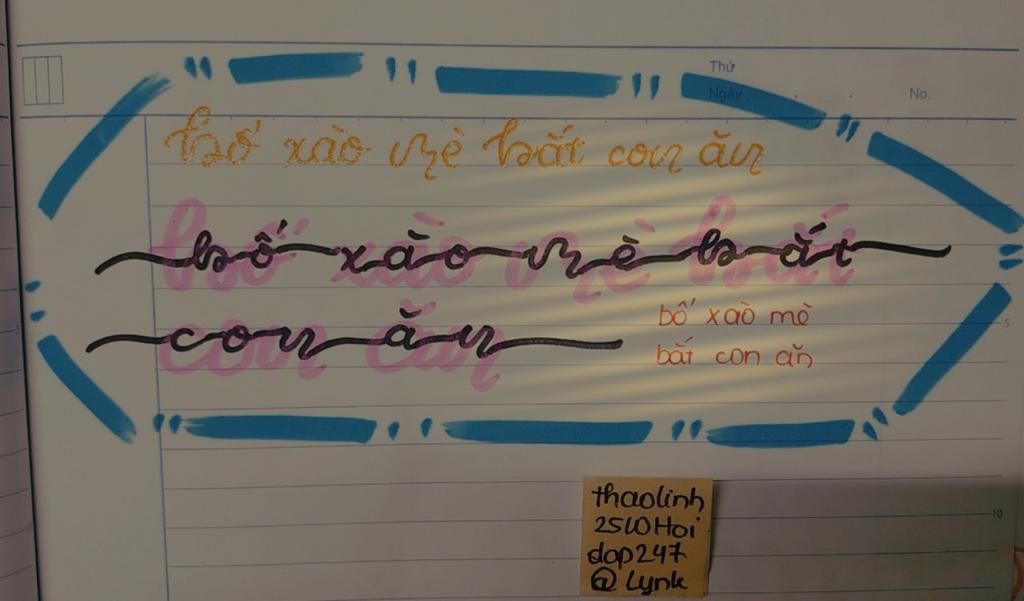 Thứ
Ngày
No.
bố xào mè bắt con ăn
bố xào mè bắt
con ăn
bố xào mè
bắt con ăn
5
5
10
thaolinh
25WHoi
dap247
@Lynk